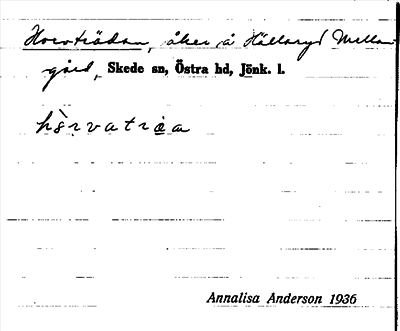 Horvträdan, åker å Hällaryd Mellan-
gård, Skede sn, Östra hd, Jönk. l.
Annalisa Anderson 1936